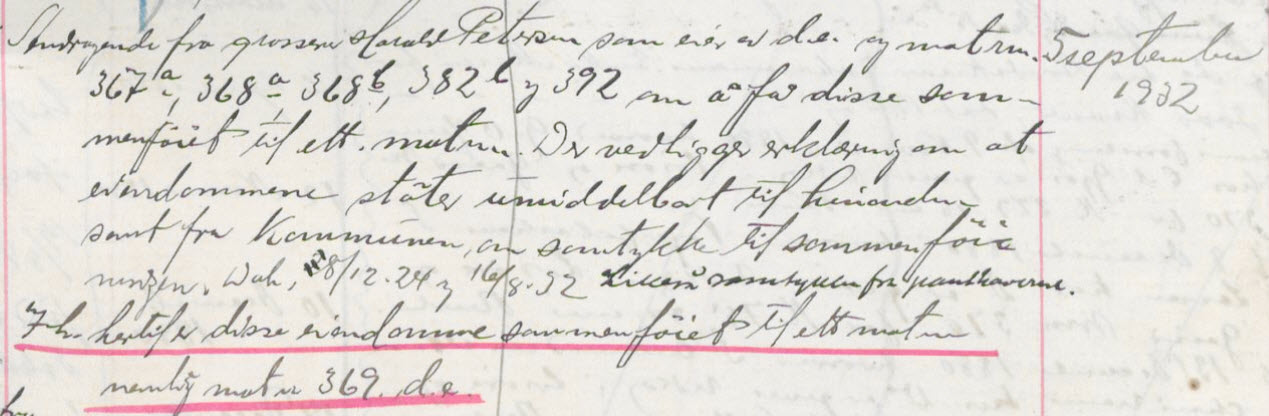 Andragende fra grosserer Harald Petersen som eier av d.e. og matrn. 5 september
367a, 368a, 368b, 382b og 392 om å få disse sam- 1932
menföiet til ett matrn. Der vedligger erklæring om at
eiendommene støter umiddelbart til hinanden
samt fra Kommunen, om samtykke til sammenföie
ningen. Dat, 8/12.24 og 16/8.32 Likeså samtykke fra panthaverne.
I h. hertil er disse eiendomme sammenföiet til ett matrn
nemlig matrn 369. d.e.